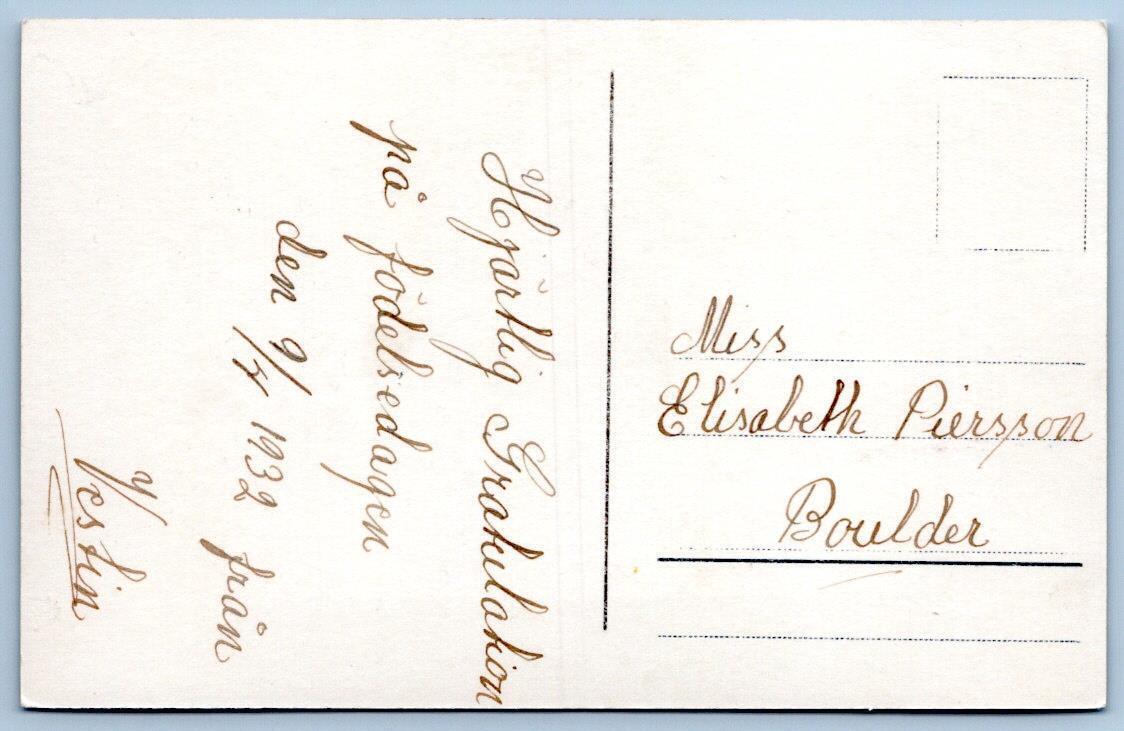 Hjärtlig Gratulation
på födelsedagen
den 9/7 1932 från
Vestin
Miss
Elisabeth Piersson
Boulder